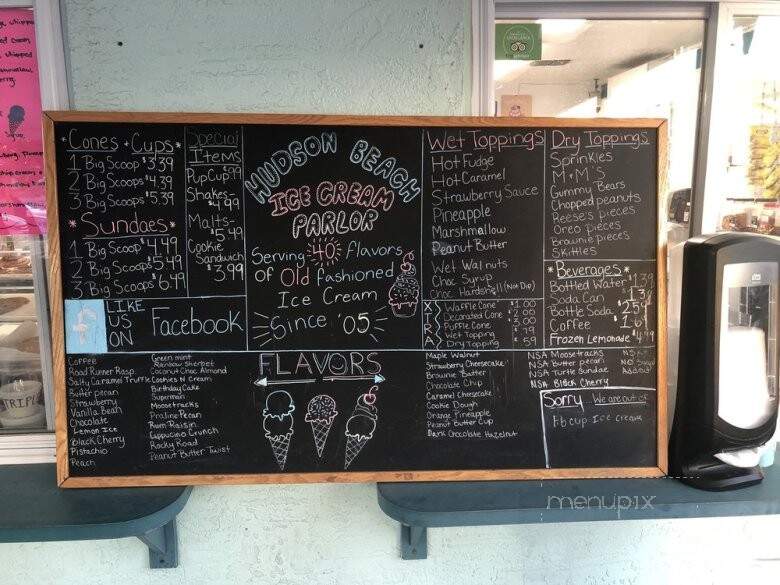 *Cones + Cups*
1 Big Scoop $3.39
2 Big Scoops $4.39
3 Big Scoops $5.39
*Sundaes*
1 Big Scoop $4.49
2 Big Scoops $5.49
3 Big Scoops $6.49
Special
Items
PupCup
Shakes-
$4.99
Malts-
$5.49
Cookie
Sandwich
$3.99
LIKE
US
ON
Facebook
HUDSON BEACH
ICE CREAM
PARLOR
Serving 40 flavors
of Old fashioned
Ice Cream
Since '05
Wet Toppings
Hot Fudge
Hot Caramel
Strawberry Sauce
Pineapple
Marshmallow
Peanut Butter
Wet Walnuts
Choc Syrup
Choc Hardshell (Not Dip)
EXTRA
Waffle Cone $1.00
Decorated Cone $2.00
Puffle Cone
Wet Topping .79
Dry Topping .59
Dry Toppings
Sprinkles
M+M'S
Gummy Bears
Chopped peanuts
Reese's pieces
Oreo pieces
Brownie pieces
SKittles
*Beverages*
Bottled Water $1.39
Soda Can
Bottle Soda
Coffee
Frozen Lemonade
FLAVORS
Coffee
Road Runner Rasp.
Salty Caramel Truffle
Butter pecan
Strawberry
Vanilla Bean
Chocolate
Lemon Ice
Black Cherry
Pistachio
Peach
Green mint
Rainbow Sherbet
Coconut Choc Almond
Cookies N Cream
Birthday Cake
Superman
Moosetracks
Praline Pecan
Rum Raisin
Cappucino Crunch
Rocky Road
Peanut Butter Twist
Maple Walnut
Strawberry Cheesecake
Brownie Batter
Chocolate Chip
Caramel Cheesecake
Cookie Dough
Orange Pineapple
Peanut Butter Cup
Dark Chocolate Hazelnut
NSA Moosetracks
NSA Butter pecan
NSA Turtle Sundae
NSA Black Cherry
NSA
No Sugar
Added
Sorry We are out of
Pb cup Ice Cream
menupix